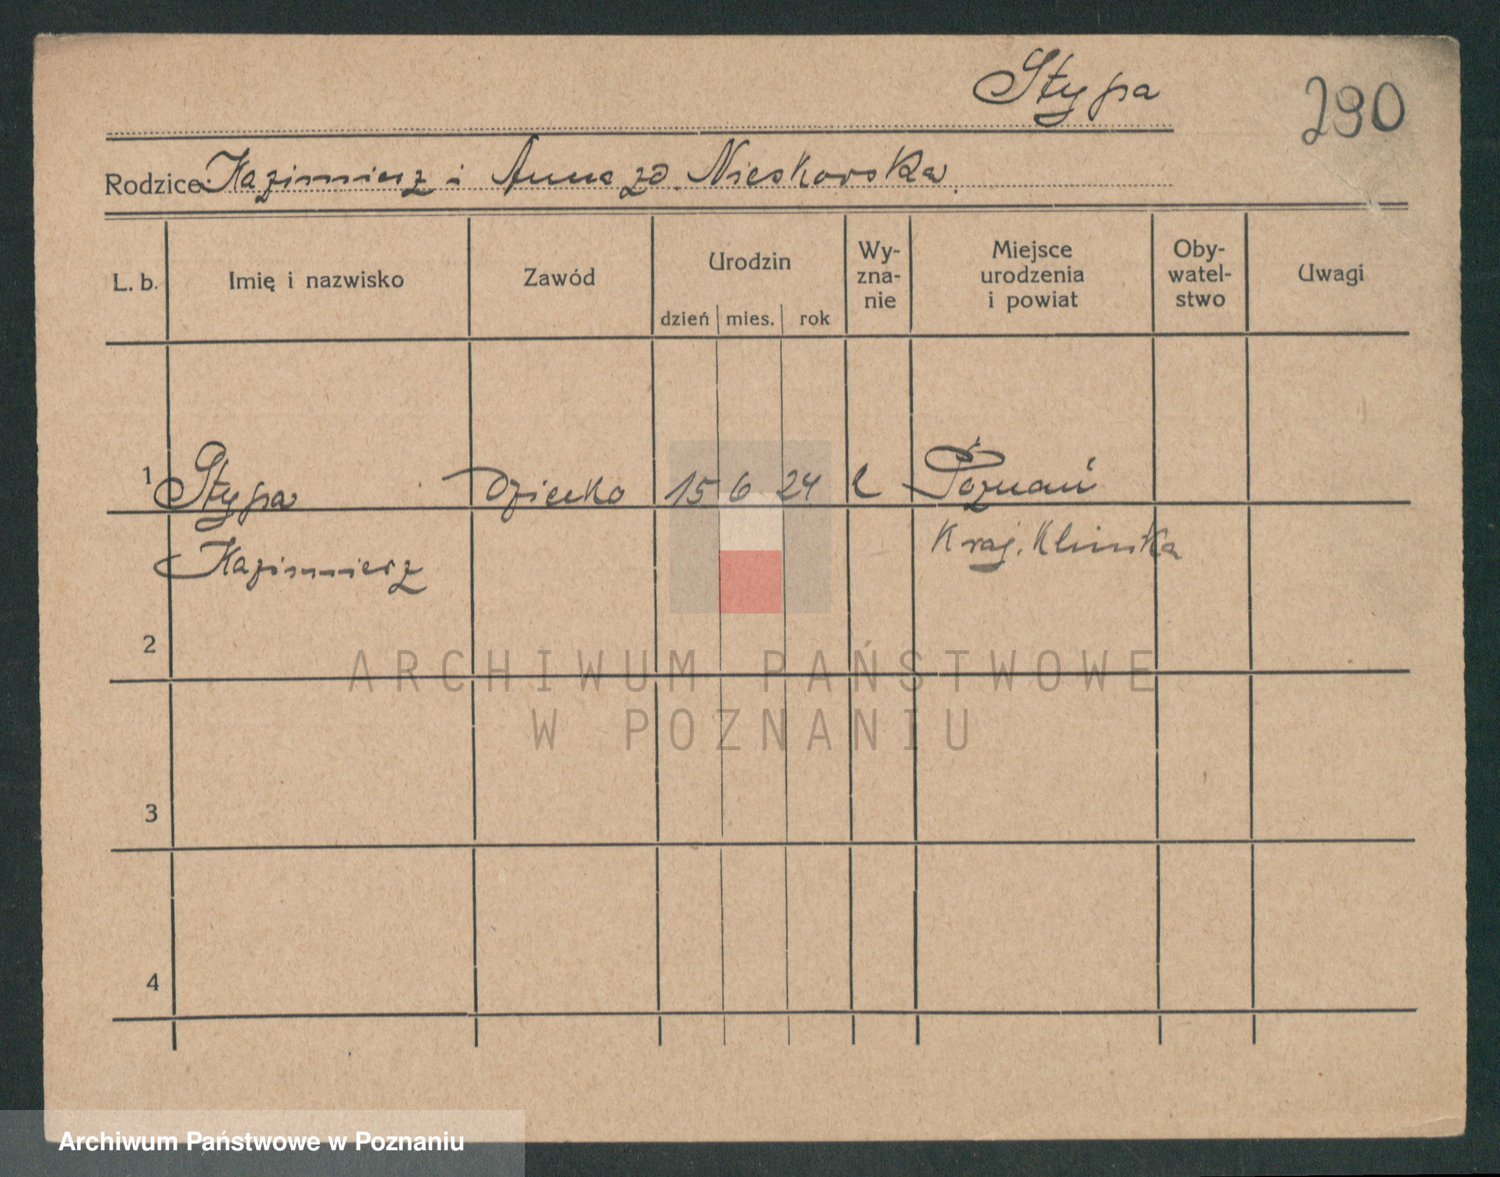 Stypa
290
Rodzice Kazimierz i Anna zd. Nieskorska.
L. b. Imię i nazwisko Zawód Urodzin Wy-zna-nie Miejsce urodzenia i powiat Oby-watel-stwo Uwagi
dzień mies. rok
1 Stypa Dziecko 15 6 24 k Poznań
Kazimierz Kraj. Klinika
2
ARCHIWUM PAŃSTWOWE
W POZNANIU
3
4
Archiwum Państwowe w Poznaniu